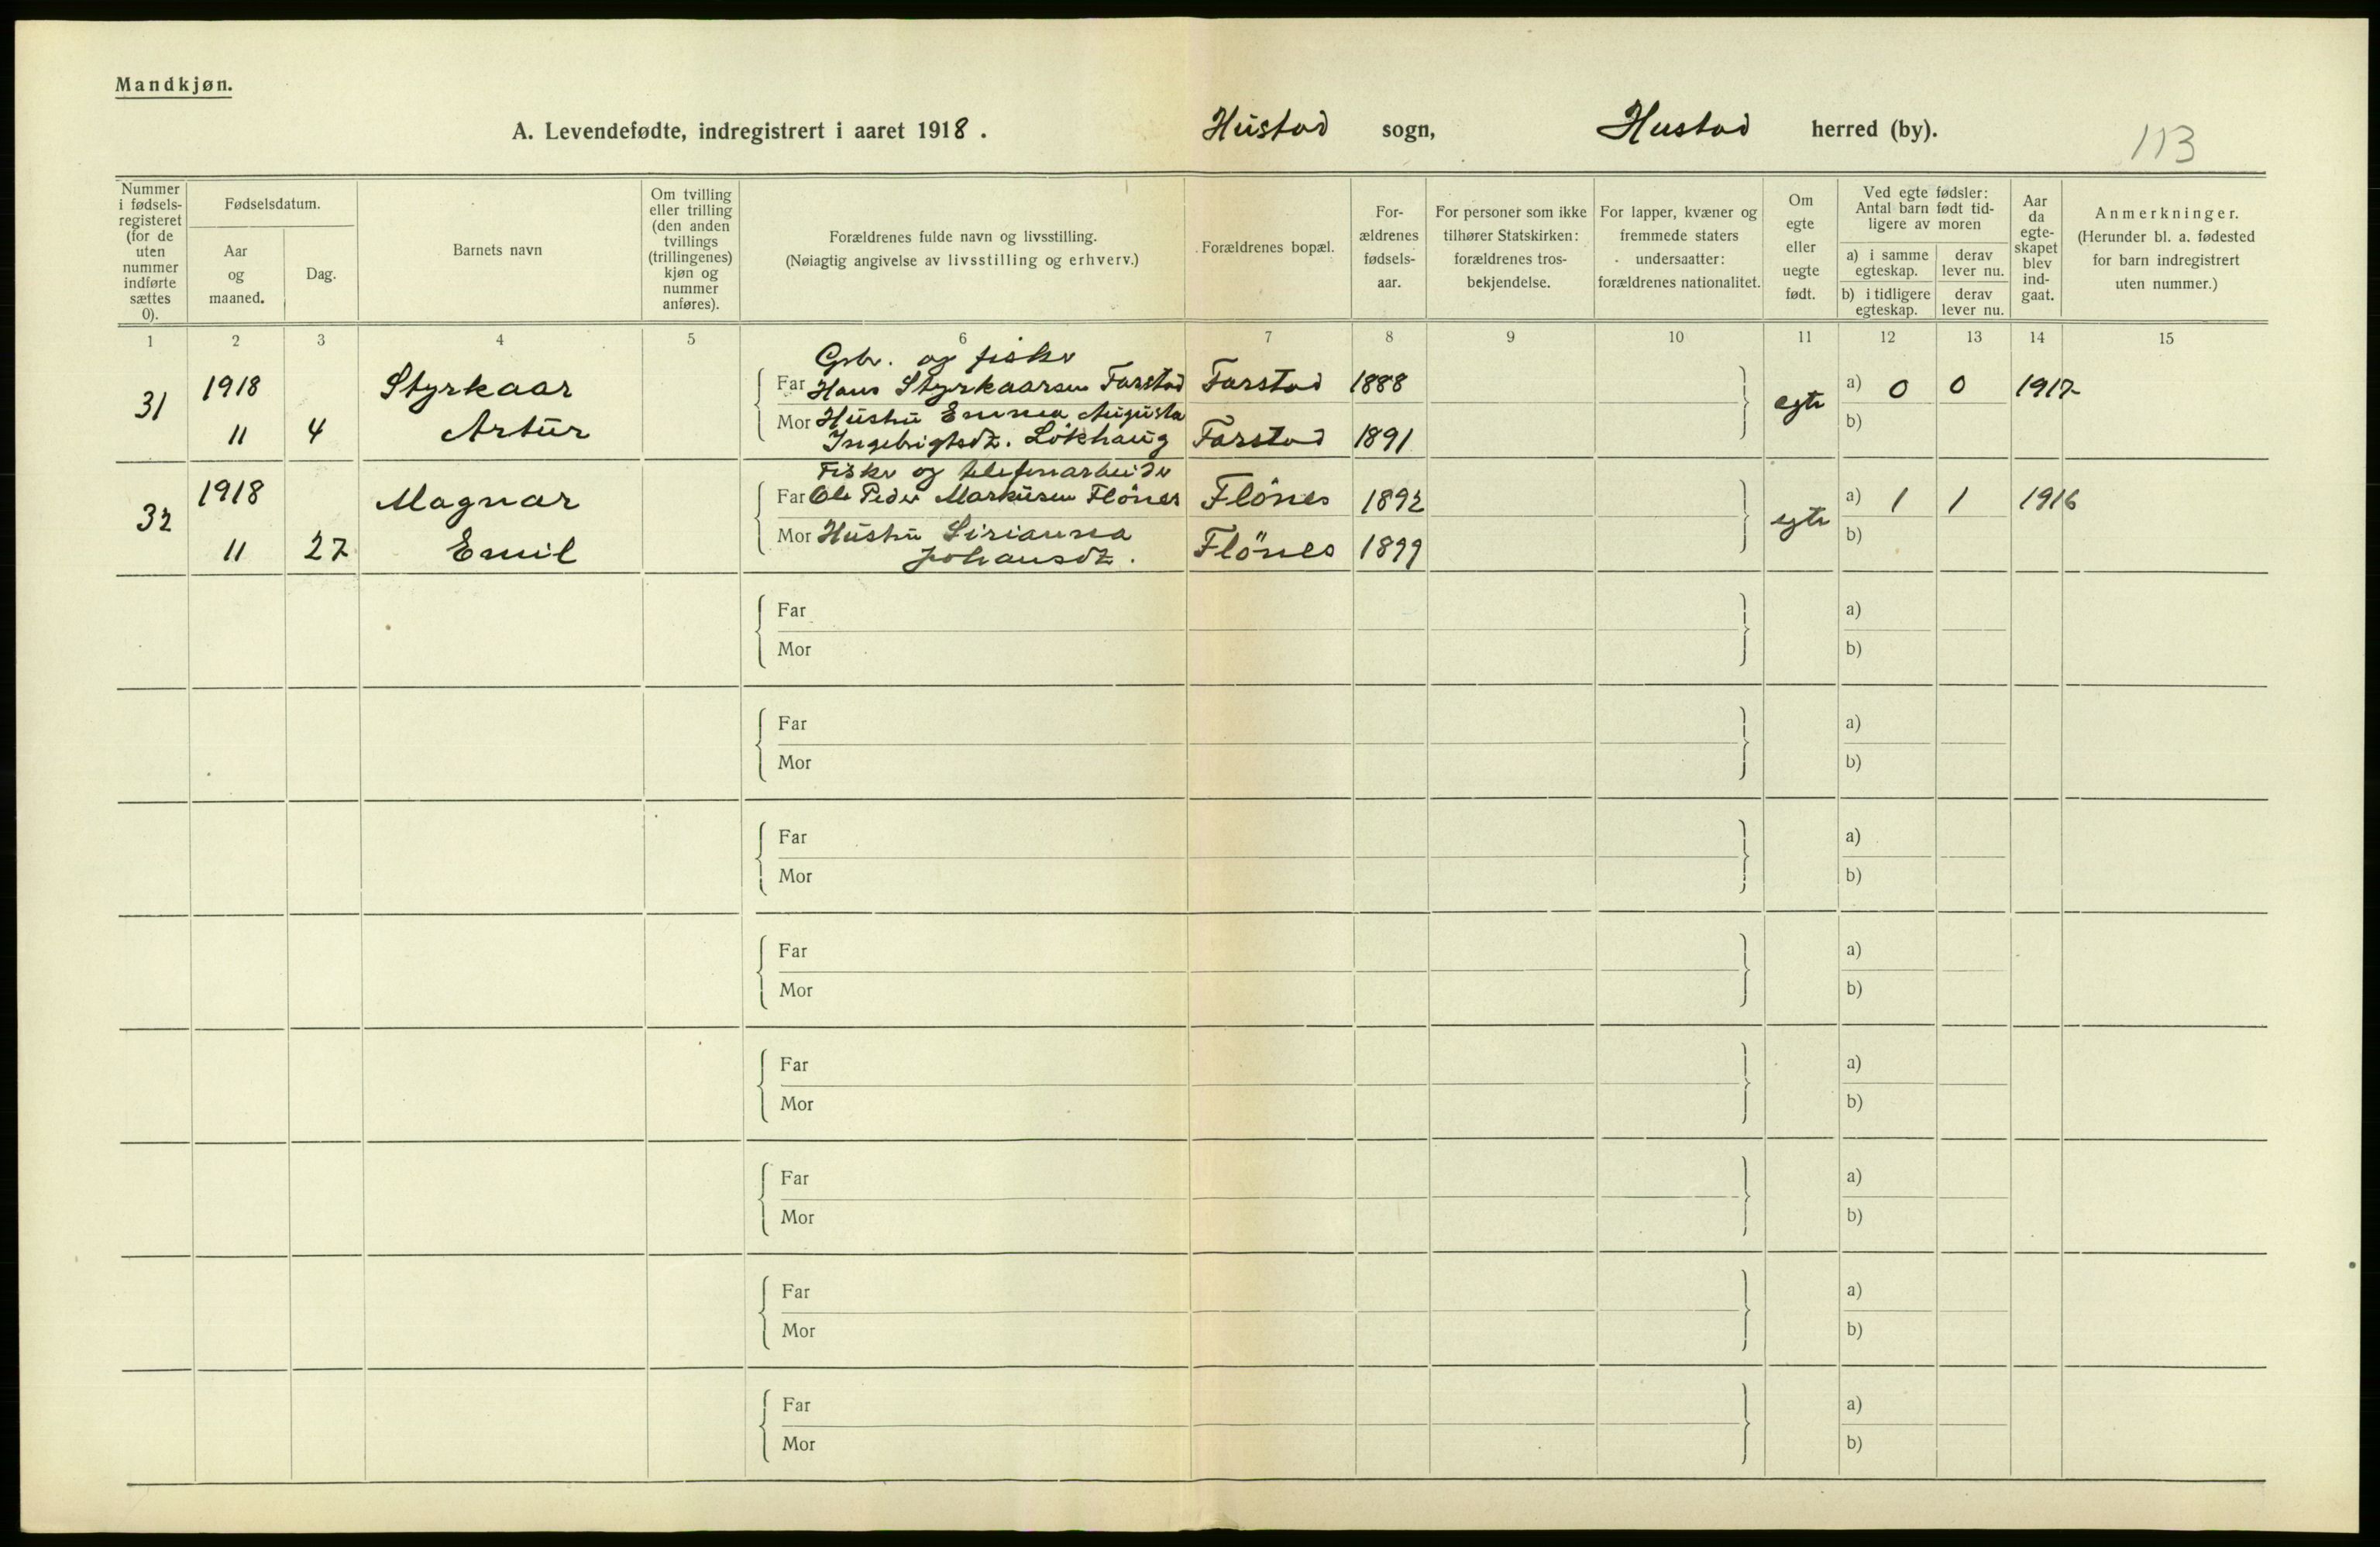 Mandkjøn.
A. Levendefødte, indregistrert i aaret 1918. Hustad sogn, Hustad herred (by).
113
Nummer i fødsels-registeret (for de uten nummer indførte sættes 0).
Fødselsdatum.
Aar og maaned.
Dag.
Barnets navn
Om tvilling eller trilling (den anden tvillings (trillingenes) kjøn og nummer anføres).
Forældrenes fulde navn og livsstilling.
(Nøiagtig angivelse av livsstilling og erhverv.)
Forældrenes bopæl.
For-ældrenes fødsels-aar.
For personer som ikke tilhører Statskirken: forældrenes tros-bekjendelse.
For lapper, kvæner og fremmede staters undersaatter: forældrenes nationalitet.
Om egte eller uegte født.
Ved egte fødsler: Antal barn født tid-ligere av moren
a) i samme egteskap.
derav lever nu.
b) i tidligere egteskap.
derav lever nu.
Aar da egte-skapet blev ind-gaat.
Anmerkninger.
(Herunder bl. a. fødested for barn indregistrert uten nummer.)
1 2 3 4 5 6 7 8 9 10 11 12 13 14 15
Gbr. og fisker
31 1918 Styrkaar Far Hans Styrkaarsen Farstad Farstad 1888 egte a) 0 0 1917
11 4 Artur Mor Hustru Emma Augusta b)
Ingebrigtsdt. Lökhaug Farstad 1891
Fisker og telefonarbeider
32 1918 Magnar Far Ole Peder Markusen Flönes Flönes 1892 egte a) 1 1 1916
11 27 Emil Mor Hustru Sirianna b)
Johansdt. Flönes 1899
Far a)
Mor b)
Far a)
Mor b)
Far a)
Mor b)
Far a)
Mor b)
Far a)
Mor b)
Far a)
Mor b)
Far a)
Mor b)
Far a)
Mor b)